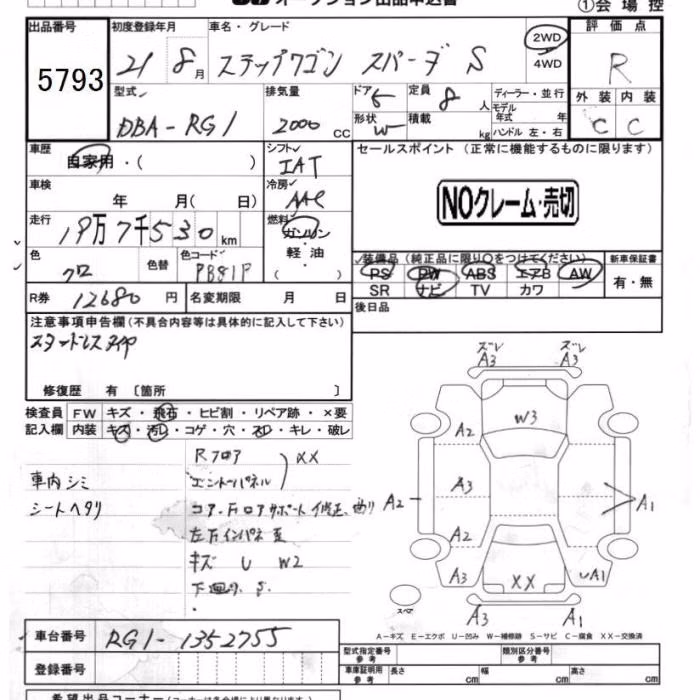 オークション出品申込書
①会場控
出品番号 初度登録年月 車名・グレード 評価点
5793 21 8月 ステップワゴン スパーダ S 2WD 4WD R
型式 排気量 ドア 定員 ディーラー・並行 外装 内装
DBA-RG1 2000cc 5 8人 モデル年式 年 C C
形状 W 積載 kg ハンドル 左・右
車歴 シフト セールスポイント (正常に機能するものに限ります)
自家用・( ) IAT
車検 冷房
年 月( 日) AAC NOクレーム・売切
走行 燃料
19万7千530km ガソリン・軽油 ( )
色 色替 色コード 装備品 (純正品に限り○をつけてください) 新車保証書
クロ PB81P PS PW ABS エアB AW 有・無
SR ナビ TV カワ
R券 12680円 名変期限 月 日 後日品
注意事項申告欄 (不具合内容等は具体的に記入して下さい)
スタッドレスタイヤ
修復歴 有 〔箇所 〕
検査員 FW キズ・飛石・ヒビ割・リペア跡・×要
記入欄 内装 キズ・汚レ・コゲ・穴・スレ・キレ・破レ
Rフロア XX
車内シミ エンドパネル
シートヘタリ コア・Fロアサポート修正、曲り
左Fインパネ歪
キズ U W2
下廻り S.
ズレ A3 ズレ A3
W3
A2
A3
A2 A1
A2
A3 XX UA1
スペア A3 A1
A-キズ E-エクボ U-凹み W-補修跡 S-サビ C-腐食 XX-交換済
車台番号 RG1-1352755
登録番号
型式指定番号 参考 類別区分番号 参考
車庫証明用 参考 長さ cm 幅 cm 高さ cm
希望出品コーナー